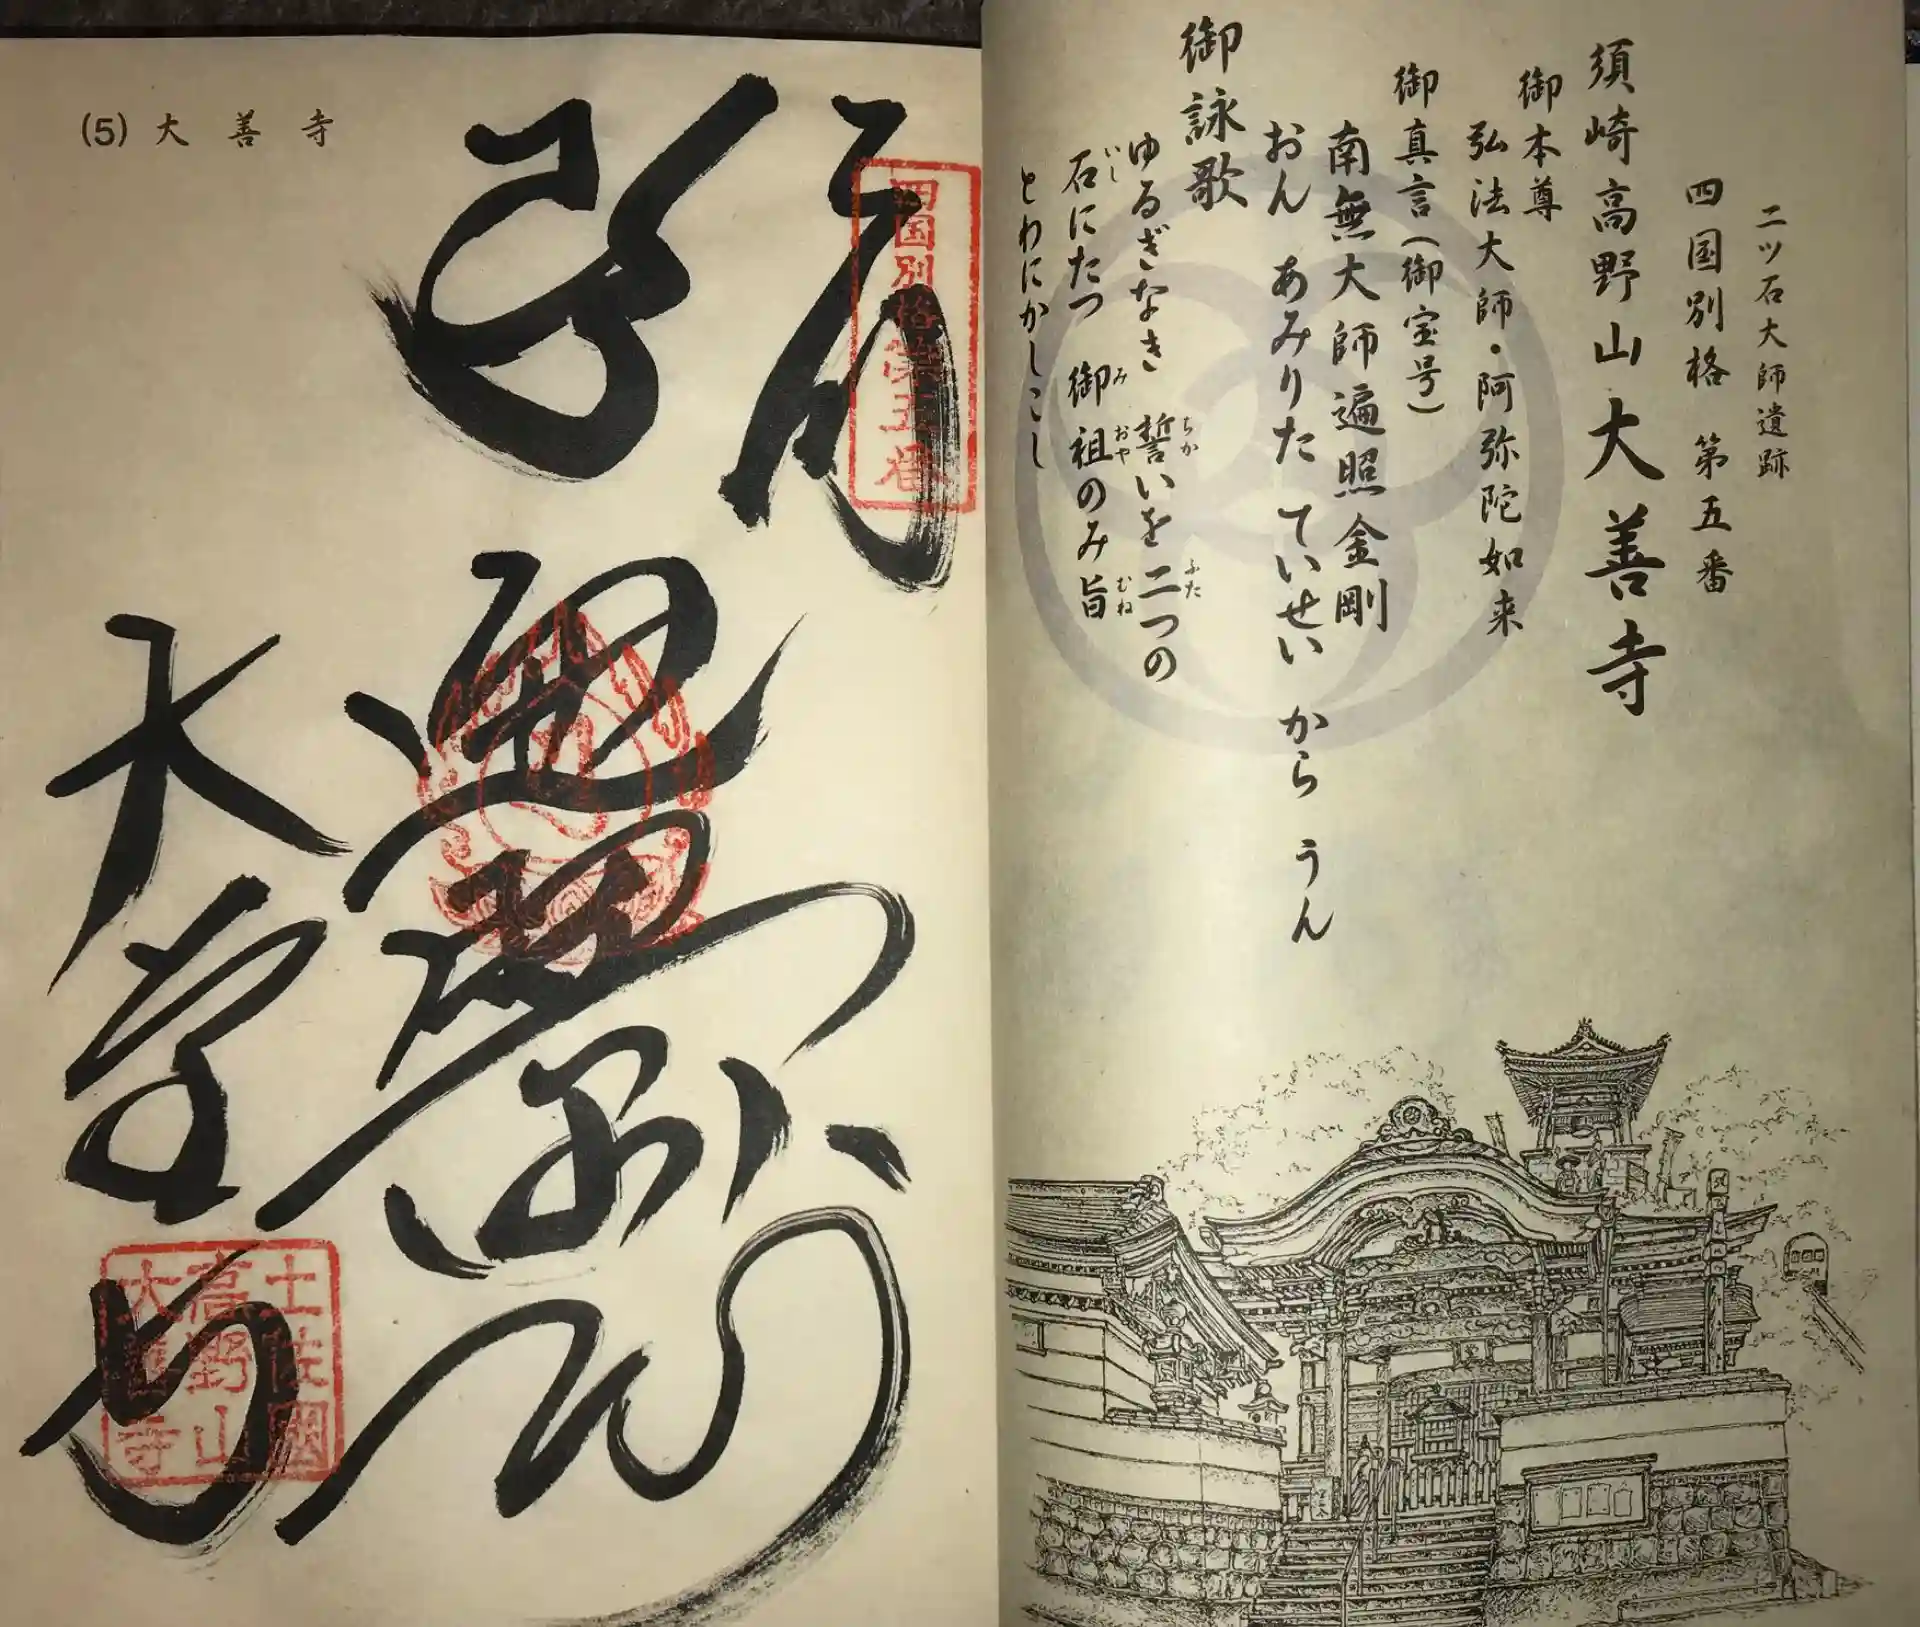 二ツ石大師遺跡
四国別格 第五番
須崎高野山 大善寺
御本尊
弘法大師・阿弥陀如来
御真言(御宝号)
南無大師遍照金剛
おん あみりた ていせい から うん
御詠歌
ゆるぎなき 誓いを二つの
ちか ふた
石にたつ 御祖のみ旨
いし み おや むね
とわにかしこし
(5) 大善寺
四国別格第五番
弘法大師
大善寺
土佐國
高野山
大善寺